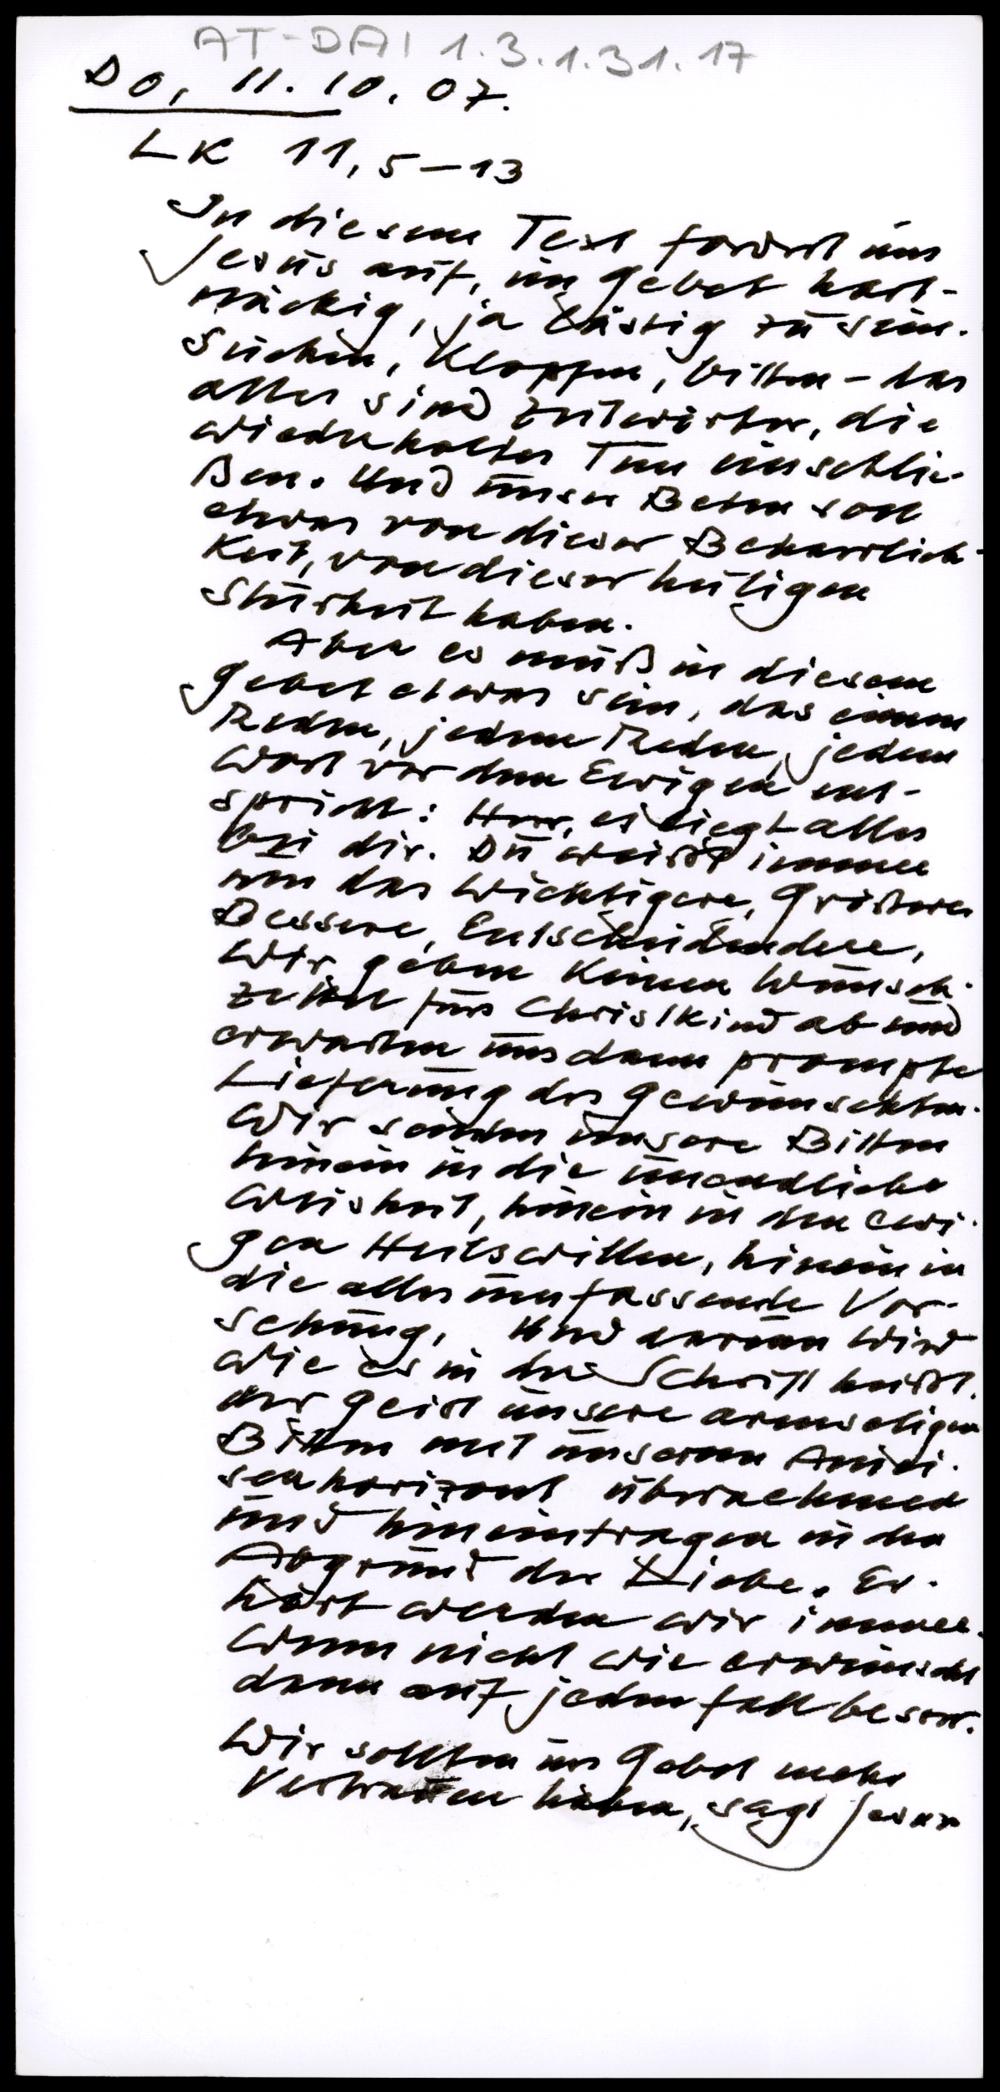 AT-DAI 1.3.1.31.17
DO, 11.10.07.
LK 11,5-13
In diesem Text fordert uns
Jesus auf, im Gebet hart-
näckig, ja lästig zu sein.
Suchen, Klopfen, bitten - das
alles sind Zeitwörter, die
wiederholtes Tun einschlie-
ßen. Und unser Beten soll
etwas von dieser Beharrlich-
keit, von dieser heiligen
Sturheit haben.
Aber es muß in diesem
Gebet etwas sein, das einem
Reden, jedem Reden, jedem
Wort vor dem Ewigen ent-
spricht: Herr, es liegt alles
bei dir. Du weißt immer
um das Wichtigere, Größere
Bessere, Entscheidendere,
Wir geben keinen Wunsch-
zettel fürs Christkind ab und
erwarten uns dann prompte
Lieferung des Gewünschten.
Wir senden unsere Bitten
hinein in die unendliche
Weisheit, hinein in den ewi-
gen Heilswillen, hinein in
die alles umfassende Vor-
sehung. Und darum wird
wie es in der Schrift heißt,
der Geist unsere armseligen
Bitten mit unserem Amei-
senhorizont übernehmen
und hineintragen in den
Abgrund der Liebe. Er-
hört werden wir immer.
Wenn nicht wie erwünscht
dann auf jeden Fall besser.
Wir sollten im Gebet mehr
Vertrauen haben, sagt Jesus